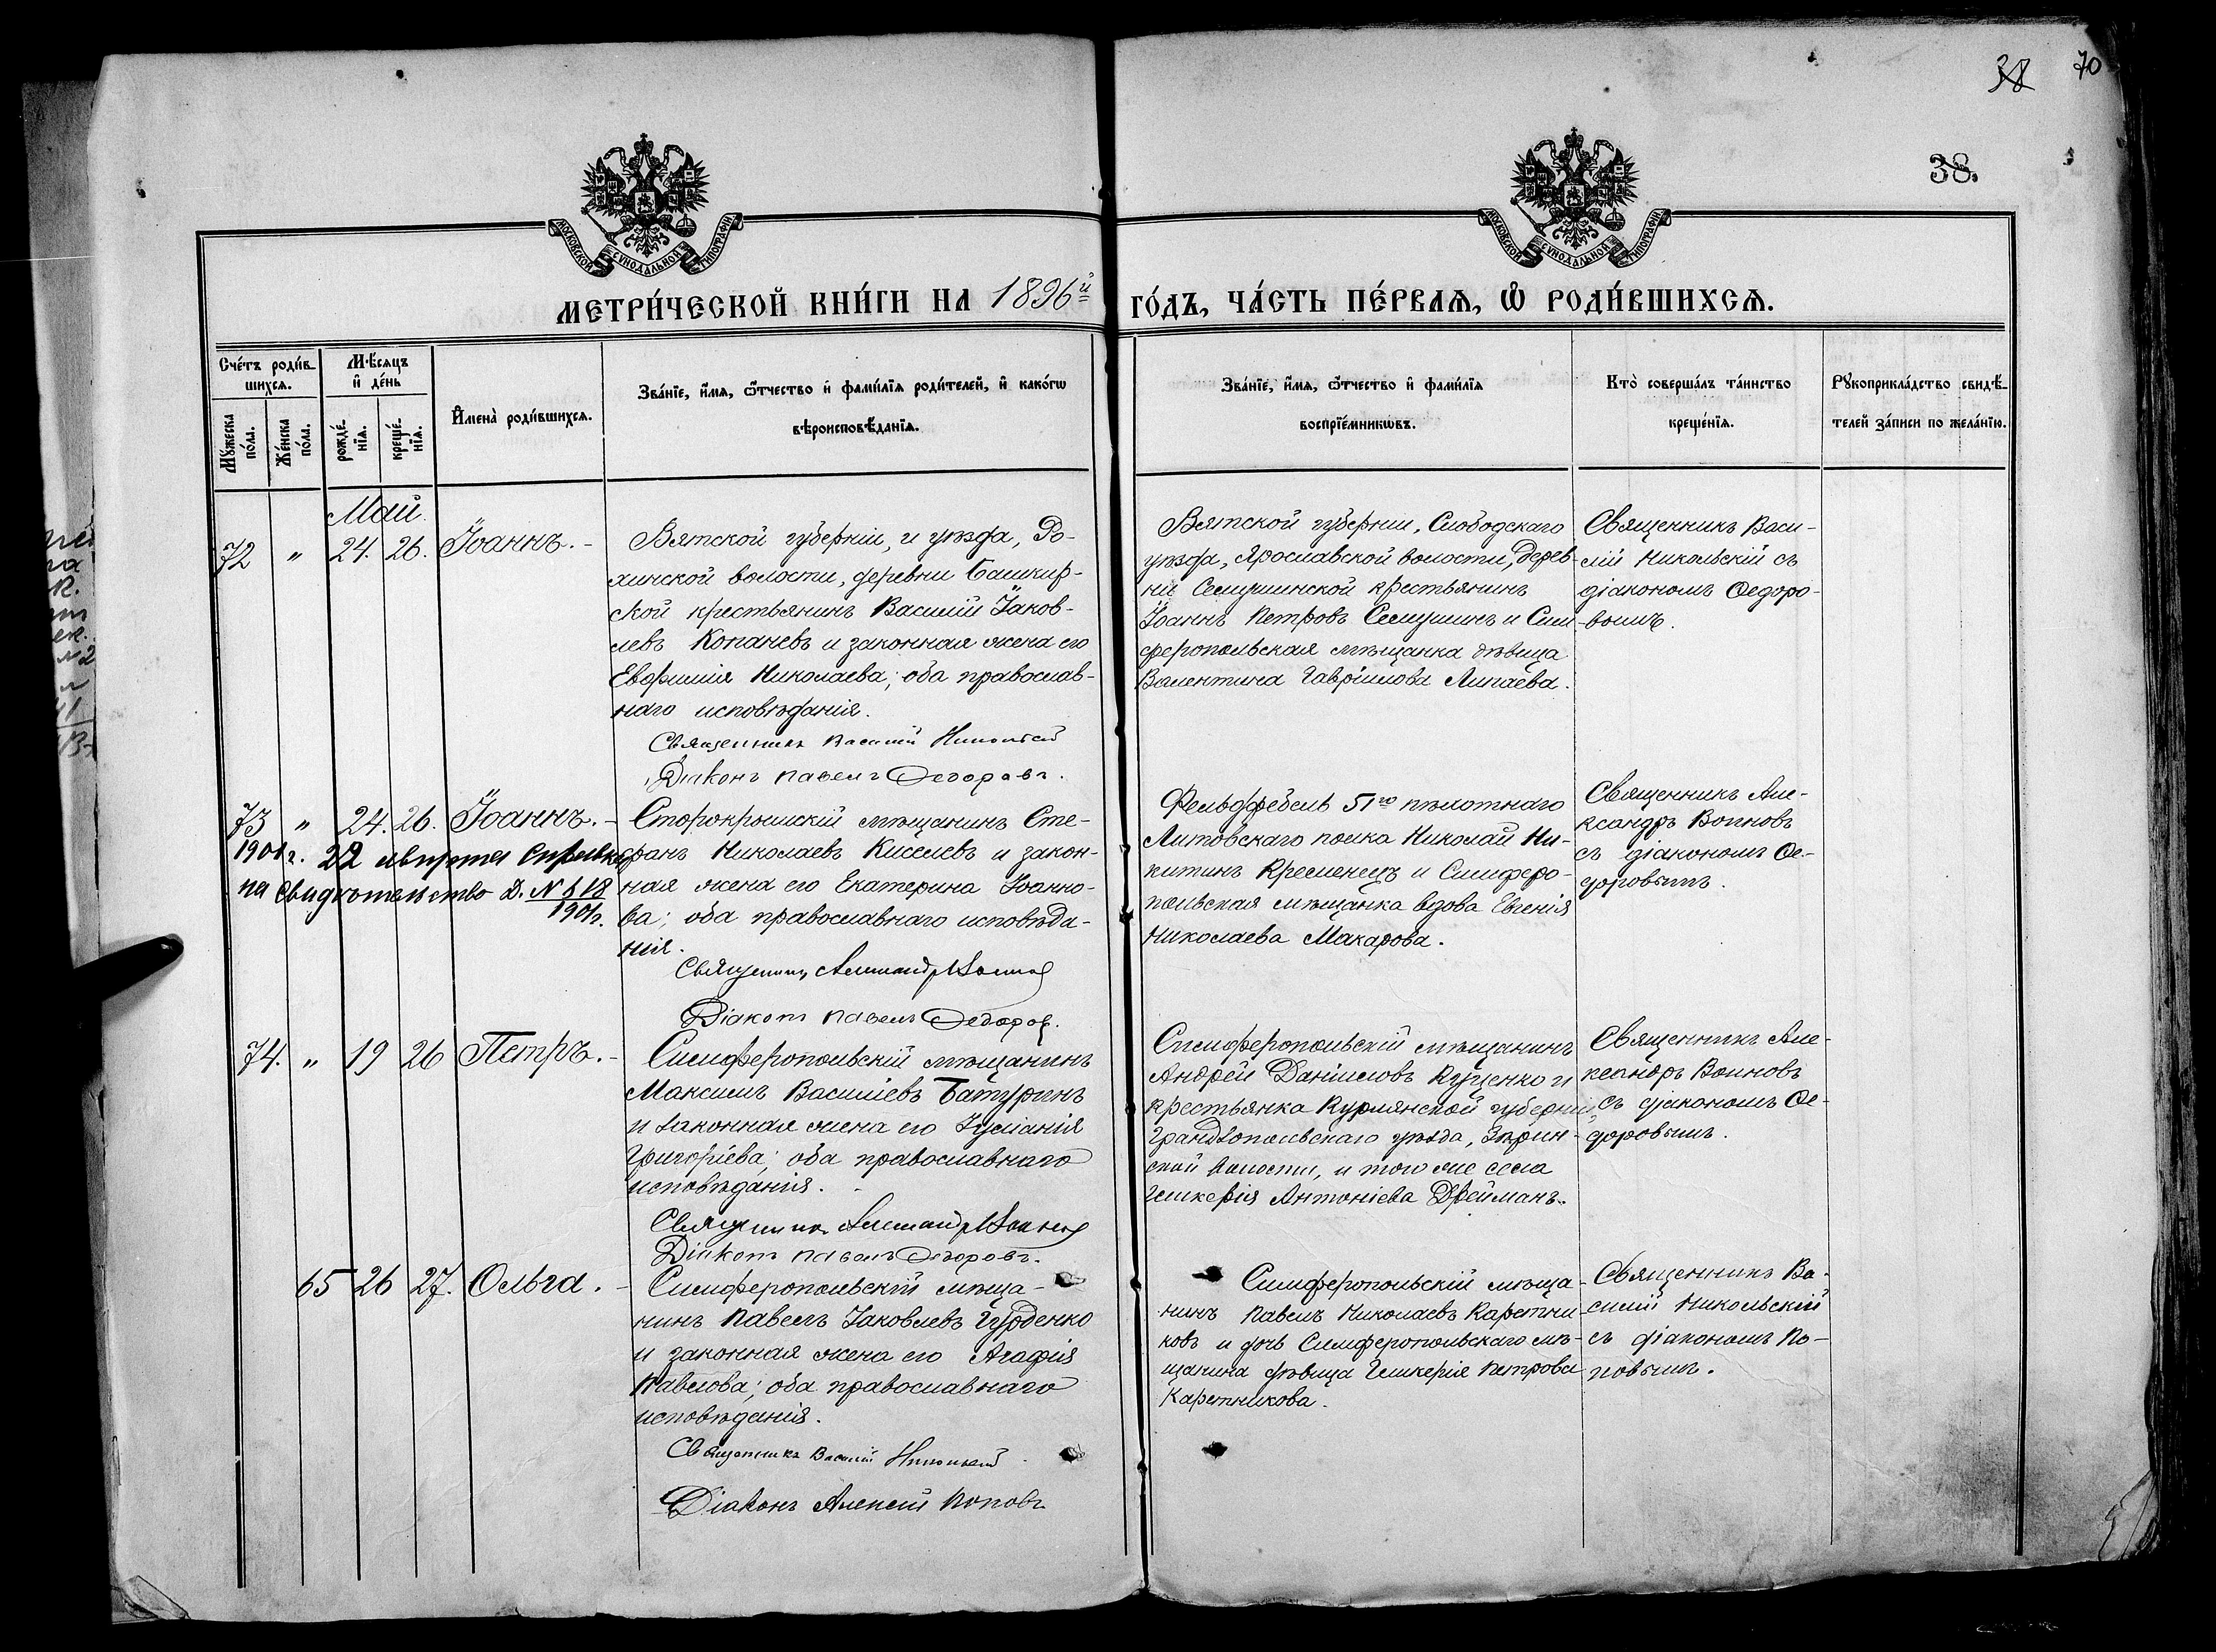 38 70
38.
МОСКОВСКОЙ СѴНОДАЛЬНОЙ ТИПОГРАФІИ
МОСКОВСКОЙ СѴНОДАЛЬНОЙ ТИПОГРАФІИ
МЕТРИ́ЧЕСКОЙ КНИ́ГИ НА 1896й
ГО́ДЪ, ЧА́СТЬ ПЕ́РВАѦ, Ѡ҆ РОДИ́ВШИХСѦ.
Сче́тъ роди́в-
шихсѧ.
Мꙋ́жеска
по́ла.
Же́нска
по́ла.
Мѣ́сѧцъ
и҆ де́нь
рожде́-
нїѧ.
креще́-
нїѧ.
И҆мена̀ роди́вшихсѧ.
Зва́нїе, и҆́мѧ, ѻ҆́тчество и҆ фами́лїѧ роди́телей, и҆ како́гѡ
вѣроисповѣ́данїѧ.
Зва́нїе, и҆́мѧ, ѻ҆́тчество и҆ фами́лїѧ
воспрїе́мникѡвъ.
Кто̀ соверша́лъ та́инство
креще́нїѧ.
Рꙋкоприкла́дство свидѣ́-
телей за́писи по жела́нїю.
Май.
72 " 24. 26. Іоаннъ. -
Вятской губерніи, и уѣзда, Ро-
хинской волости, деревни Башкир-
ской крестьянинъ Василій Іаков-
левъ Копаневъ и законная жена его
Евфимія Николаева; оба православ-
наго исповѣданія.
Священникъ Василій Никольскій
Діаконъ Павелъ Ѳедоровъ.
Вятской губерніи, Слободскаго
уѣзда, Ярославской волости, дерев-
ни Семушинской крестьянинъ
Іоаннъ Петровъ Семушинъ и Сим-
феропольская мѣщанка дѣвица
Валентина Гавріилова Липаева.
Священникъ Васи-
лій Никольскій съ
діакономъ Ѳедоро-
вымъ.
73 " 24. 26. Іоаннъ. -
1901 г. 22 марта Справка
на свидѣтельство Д. № 618
1901 г.
Старокрымскій мѣщанинъ Сте-
фанъ Николаевъ Киселевъ и закон-
ная жена его Екатерина Іоанно-
ва; оба православнаго исповѣда-
нія.
Священникъ Александръ Воиновъ
Діаконъ Павелъ Ѳедоровъ.
Фельдфебель 51го пѣхотнаго
Литовскаго полка Николай Ни-
китинъ Кременецъ и Симферо-
польская мѣщанка вдова Евгенія
Николаева Макарова.
Священникъ Але-
ксандръ Воиновъ
съ діакономъ Ѳе-
доровымъ.
74. " 19 26 Петръ. -
Симферопольскій мѣщанинъ
Максимъ Василіевъ Батуринъ
и законная жена его Іуліанія
Григоріева; оба православнаго
исповѣданія.
Священникъ Александръ Воиновъ
Діаконъ Павелъ Ѳедоровъ.
Симферопольскій мѣщанинъ
Андрей Даніиловъ Куценко и
крестьянка Курлянской губерніи,
уѣзда,
ской волости, и того же села
Гликерія Антоніева Дрейманъ.
Священникъ Але-
ксандръ Воиновъ
съ діакономъ Ѳе-
доровымъ.
65 26 27. Ольга. -
Симферопольскій мѣща-
нинъ Павелъ Іаковлевъ Гурденко
и законная жена его Агафія
Павлова; оба православнаго
исповѣданія.
Священникъ Василій Никольскій
Діаконъ Алексій Поповъ
Симферопольскій мѣща-
нинъ Павелъ Николаевъ Каретни-
ковъ и дочь Симферопольскаго мѣ-
щанина дѣвица Гликерія Петрова
Каретникова.
Священникъ Ва-
силій Никольскій
съ діакономъ По-
повымъ.